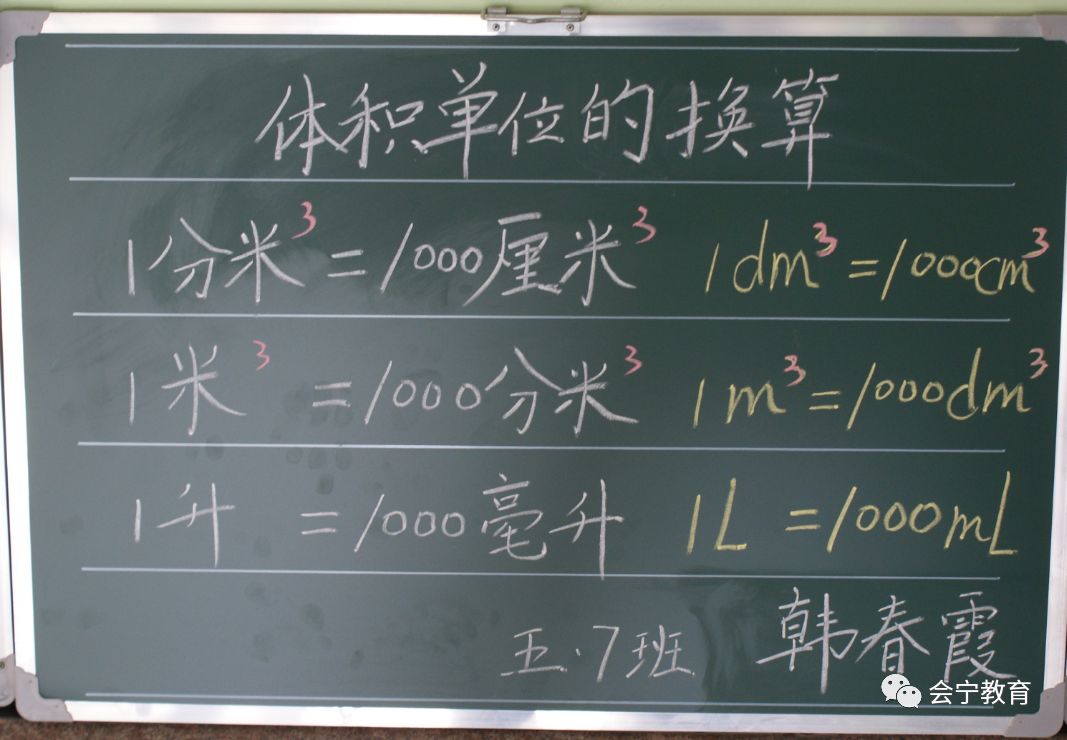 体积单位的换算
1分米³=1000厘米³ 1dm³=1000cm³
1米³=1000分米³ 1m³=1000dm³
1升=1000毫升 1L=1000mL
五.7班 韩春霞
会宁教育